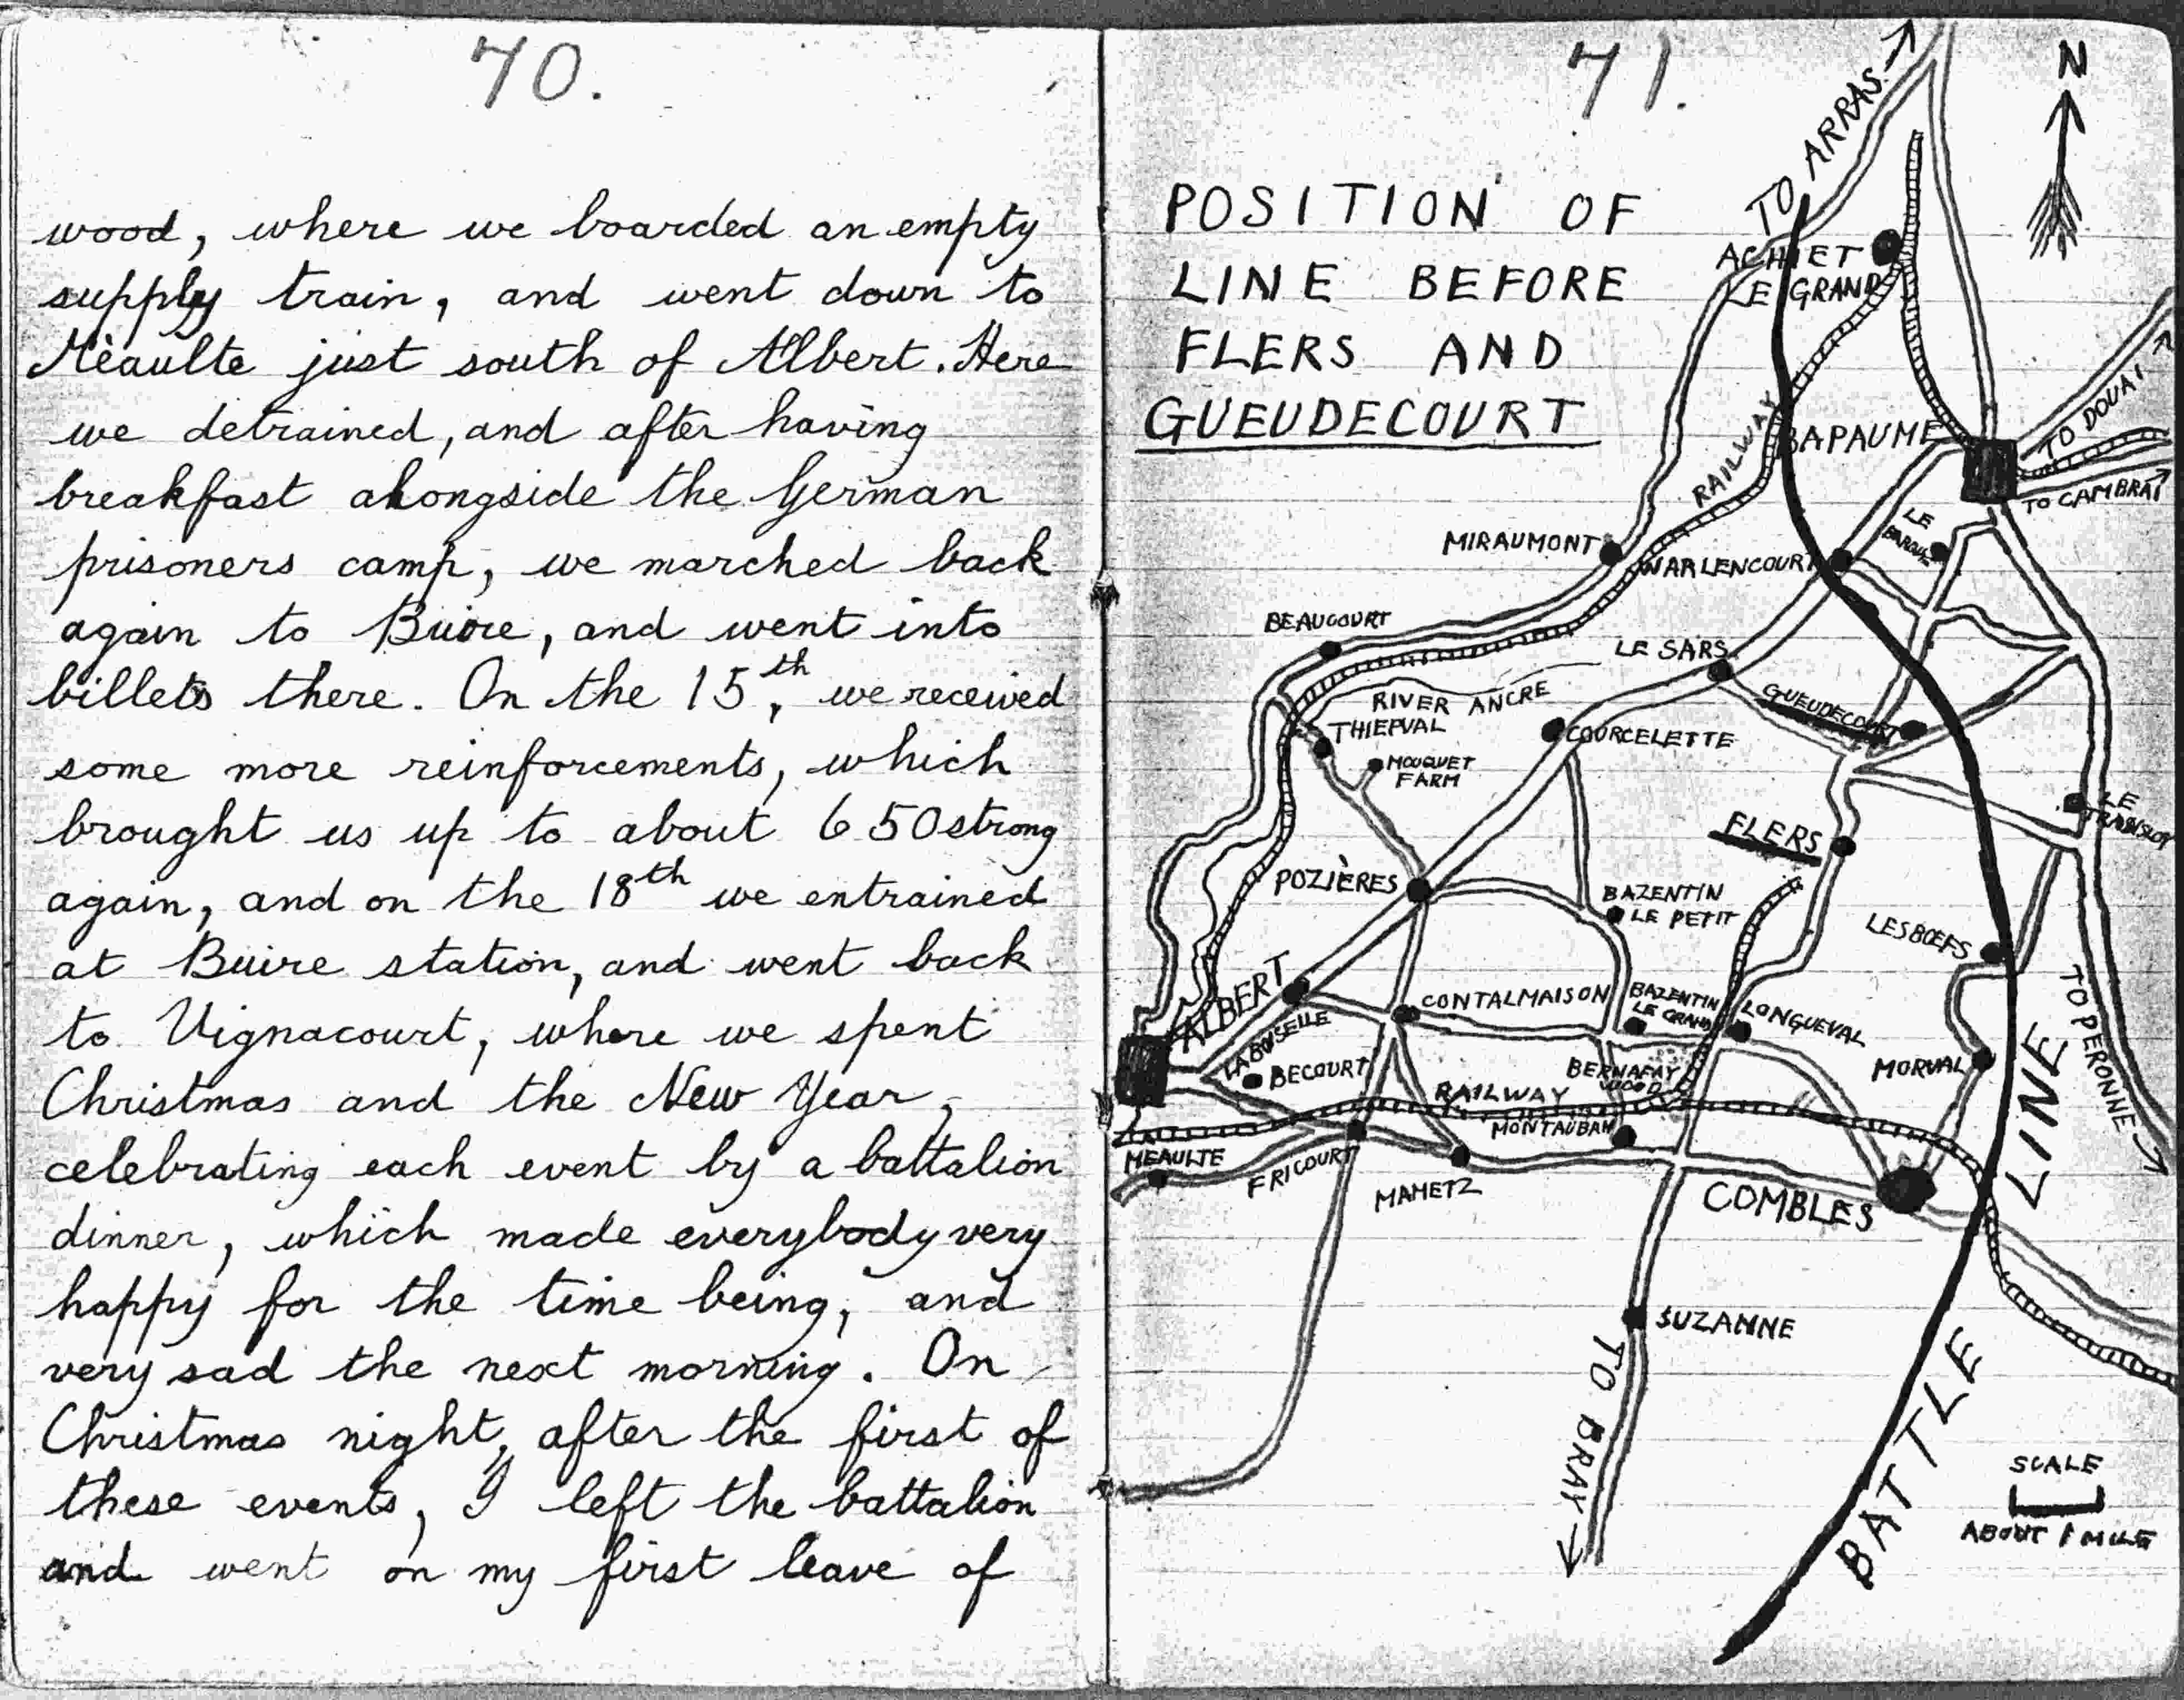 70.
wood, where we boarded an empty
supply train, and went down to
Mèaulte just south of Albert. Here
we detrained, and after having
breakfast alongside the German
prisoners camp, we marched back
again to Buire, and went into
billets there. On the 15th, we received
some more reinforcements, which
brought us up to about 650 strong
again, and on the 18th we entrained
at Buire station, and went back
to Vignacourt, where we spent
Christmas and the New Year,
celebrating each event by a battalion
dinner, which made everybody very
happy for the time being, and
very sad the next morning. On
Christmas night, after the first of
these events, I left the battalion
and went on my first leave of
71.
N
POSITION OF
LINE BEFORE
FLERS AND
GUEUDECOURT
TO ARRAS
ACHIET
LE GRAND
RAILWAY
BAPAUME
TO DOUAI
TO CAMBRAI
MIRAUMONT
WARLENCOURT
LE
BARQUE
BEAUCOURT
LE SARS
RIVER ANCRE
GUEUDECOURT
THIEPVAL
COURCELETTE
MOUQUET
FARM
LE
TRANSLOY
FLERS
POZIÈRES
BAZENTIN
LE PETIT
LESBŒFS
ALBERT
LABOISELLE
CONTALMAISON
BAZENTIN
LE GRAND
LONGUEVAL
TO PERONNE
BECOURT
BERNAFAY
WOOD
MORVAL
RAILWAY
MONTAUBAN
MEAULTE
FRICOURT
MAMETZ
COMBLES
SUZANNE
TO BRAY
BATTLE LINE
SCALE
ABOUT 1 MILE